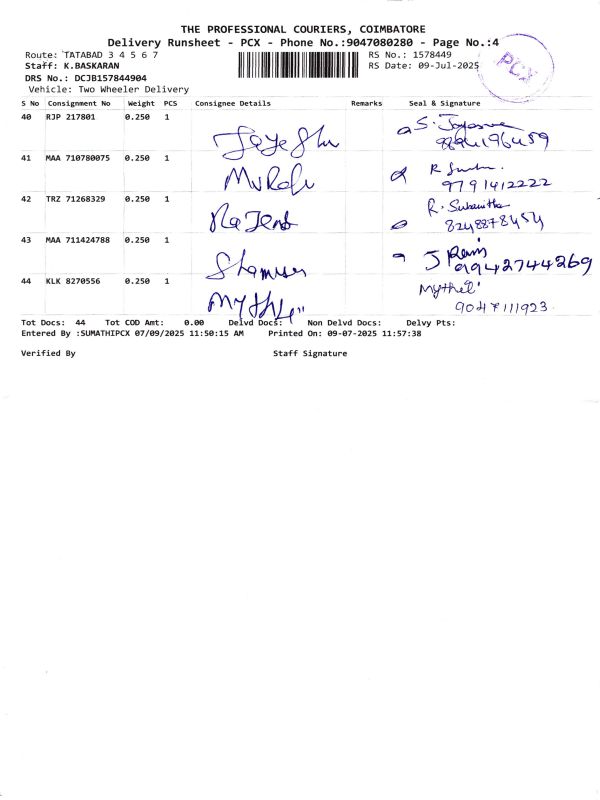 THE PROFESSIONAL COURIERS, COIMBATORE
Delivery Runsheet - PCX - Phone No.:9047080280 - Page No.:4
Route: TATABAD 3 4 5 6 7
RS No.: 1578449
Staff: K.BASKARAN
RS Date: 09-Jul-2025
PCX
DRS No.: DCJB157844904
Vehicle: Two Wheeler Delivery
S No Consignment No Weight PCS Consignee Details Remarks Seal & Signature
40 RJP 217801 0.250 1
41 MAA 710780075 0.250 1
9791412222
42 TRZ 71268329 0.250 1
8248878454
43 MAA 711424788 0.250 1
9942744269
44 KLK 8270556 0.250 1
9047111923
Tot Docs: 44 Tot COD Amt: 0.00 Delvd Docs: Non Delvd Docs: Delvy Pts:
Entered By :SUMATHIPCX 07/09/2025 11:50:15 AM Printed On: 09-07-2025 11:57:38
Verified By Staff Signature